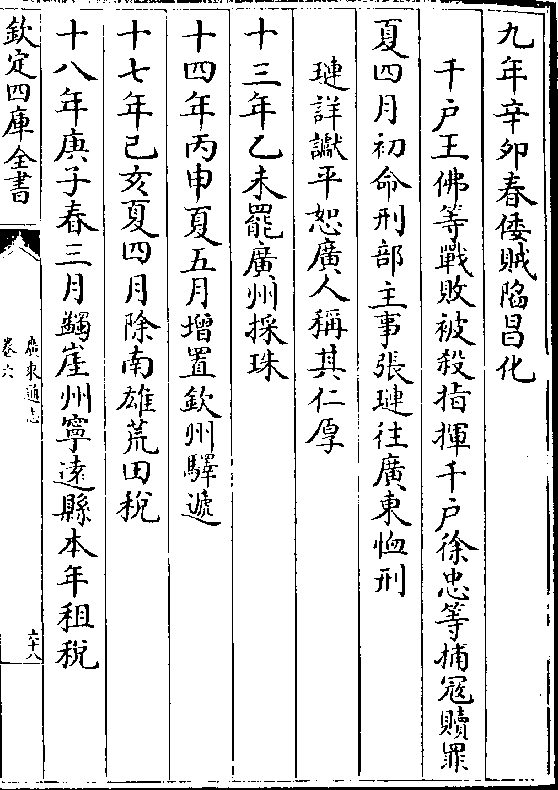 九年辛卯春倭賊陷昌化
千戶王佛等戰敗被殺指揮千戶徐忠等捕寇贖罪
夏四月初命刑部主事張璉往廣東恤刑
璉詳讞平恕廣人稱其仁厚
十三年乙未罷廣州採珠
十四年丙申夏五月增置欽州驛遞
十七年己亥夏四月除南雄荒田稅
十八年庚子春三月蠲崖州寧遠縣本年租稅
欽定四庫全書
廣東通志
卷六
六十八